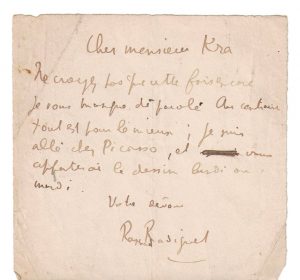 Cher monsieur Kra
Ne croyez pas que cette fois encore
je vous manque de parole Au contraire
tout est pour le mieux ; je suis
allé chez Picasso, et vous
apporterai le dessin lundi ou
mardi
Votre dévoué
Raymond Radiguet